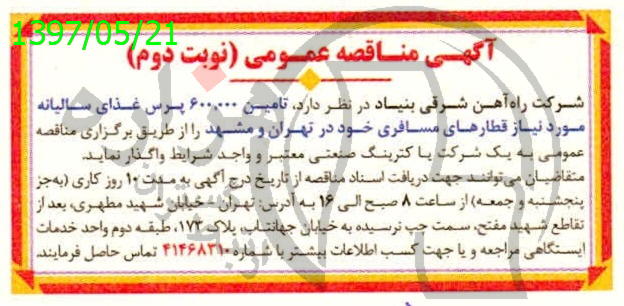 1397/05/21
آگهی مناقصه عمومی (نوبت دوم)
شرکت راه‌آهن شرقی بنیاد در نظر دارد، تامین ۶۰۰,۰۰۰ پرس غذای سالیانه
مورد نیاز قطارهای مسافری خود در تهران و مشهد را از طریق برگزاری مناقصه
عمومی به یک شرکت یا کترینگ صنعتی معتبر و واجد شرایط واگذار نماید.
متقاضیان می‌توانند جهت دریافت اسناد مناقصه از تاریخ درج آگهی به مدت ۱۰ روز کاری (به‌جز
پنجشنبه و جمعه) از ساعت ۸ صبح الی ۱۶ به آدرس: تهران - خیابان شهید مطهری، بعد از
تقاطع شهید مفتح، سمت چپ نرسیده به خیابان جهانتاب، پلاک ۱۷۲، طبقه دوم واحد خدمات
ایستگاهی مراجعه و یا جهت کسب اطلاعات بیشتر با شماره ۴۱۴۶۸۳۱۰ تماس حاصل فرمایند.